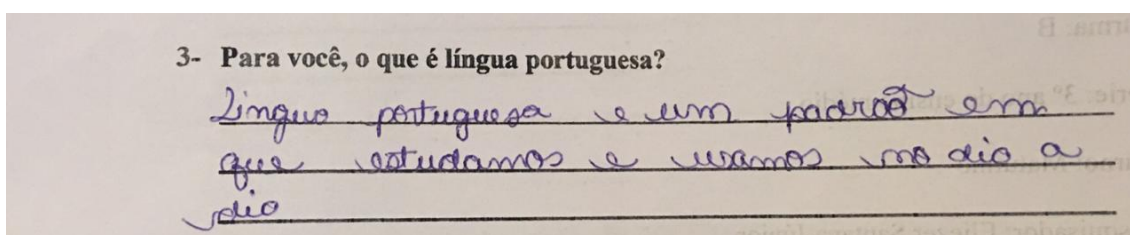 3- Para você, o que é língua portuguesa?
Lingua portuguesa e um padrão em
que estudamos e usamos no dia a
dia